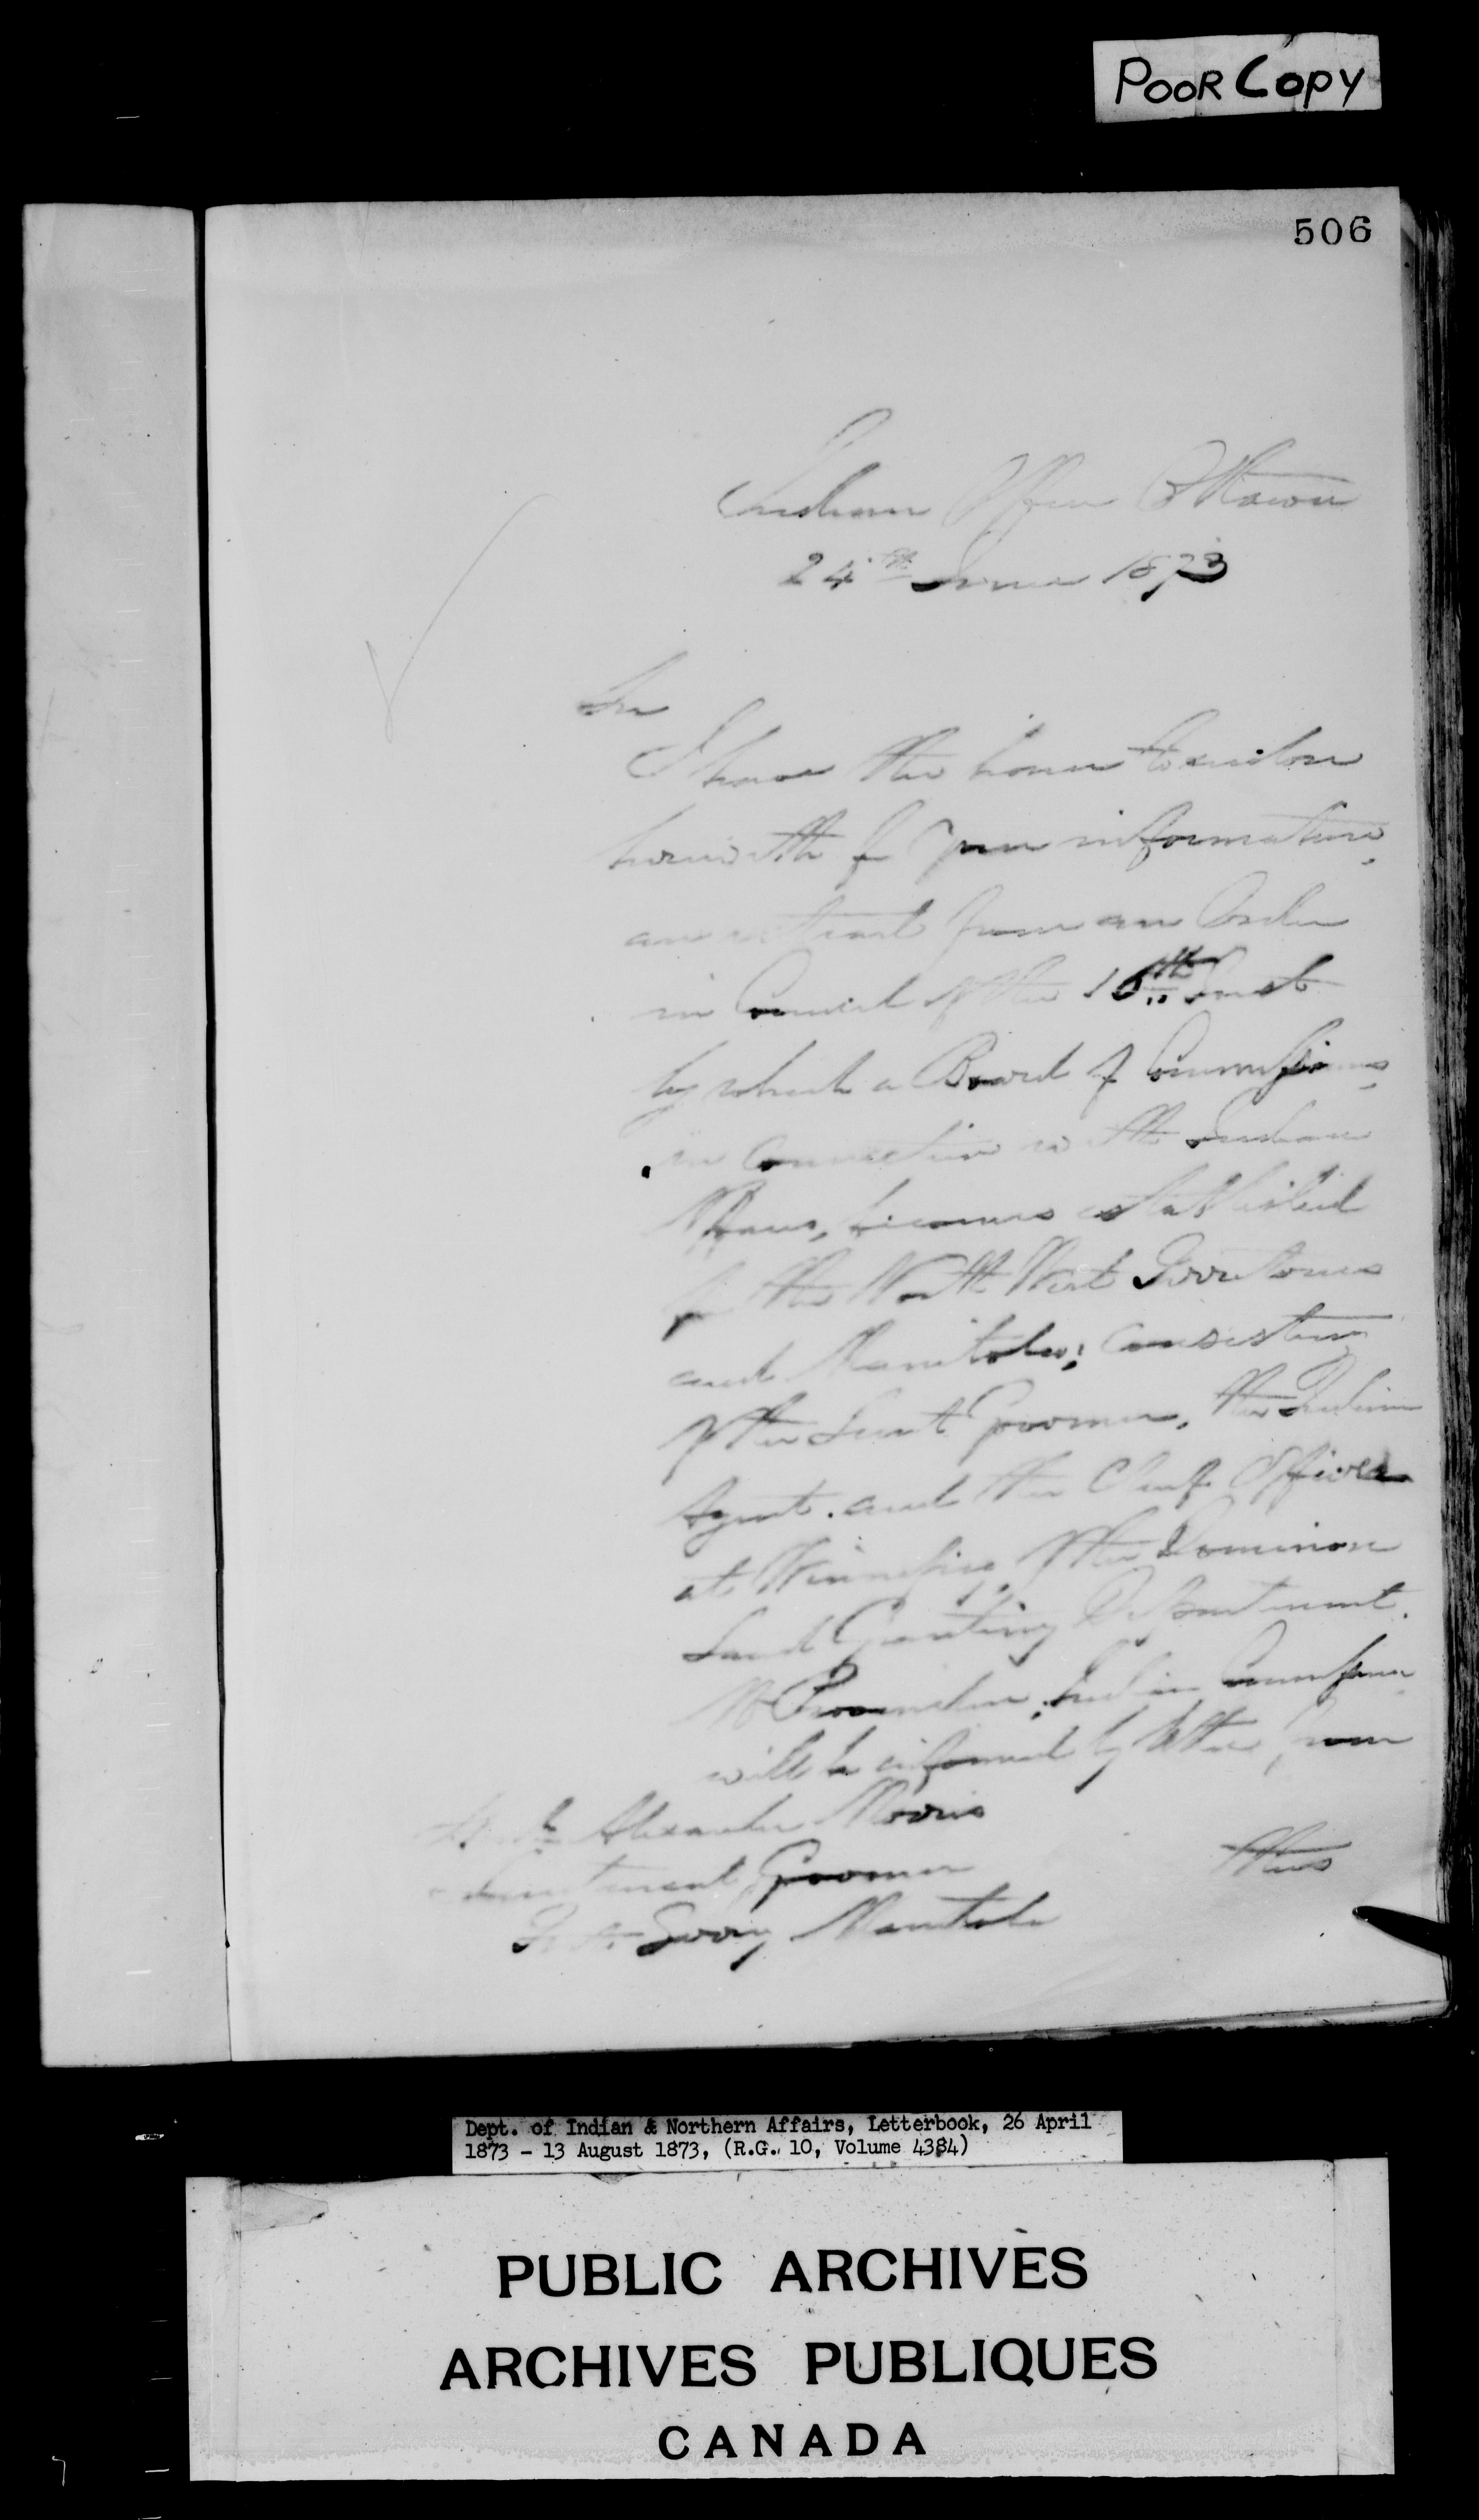 POOR COPY
506
Indian Office Ottawa
24th June 1873
Sir
I have the honor to enclose
herewith for your information,
an extract from an Order
in Council of the 16th Inst
by which a Board of Commissioners,
in connection with Indian
Affairs, becomes established
for the North West Territories
and Manitoba; consisting
of the Lieut Governor, the Indian
Agent and the Chief Officer
at Winnipeg of the Dominion
Land Granting Department.
Mr Provencher, Indian Commissioner
will be informed by letter from
this
Alexander Morris
Lieutenant Governor
Fort Garry Manitoba
Dept. of Indian & Northern Affairs, Letterbook, 26 April
1873 - 13 August 1873, (R.G. 10, Volume 4384)
PUBLIC ARCHIVES
ARCHIVES PUBLIQUES
CANADA